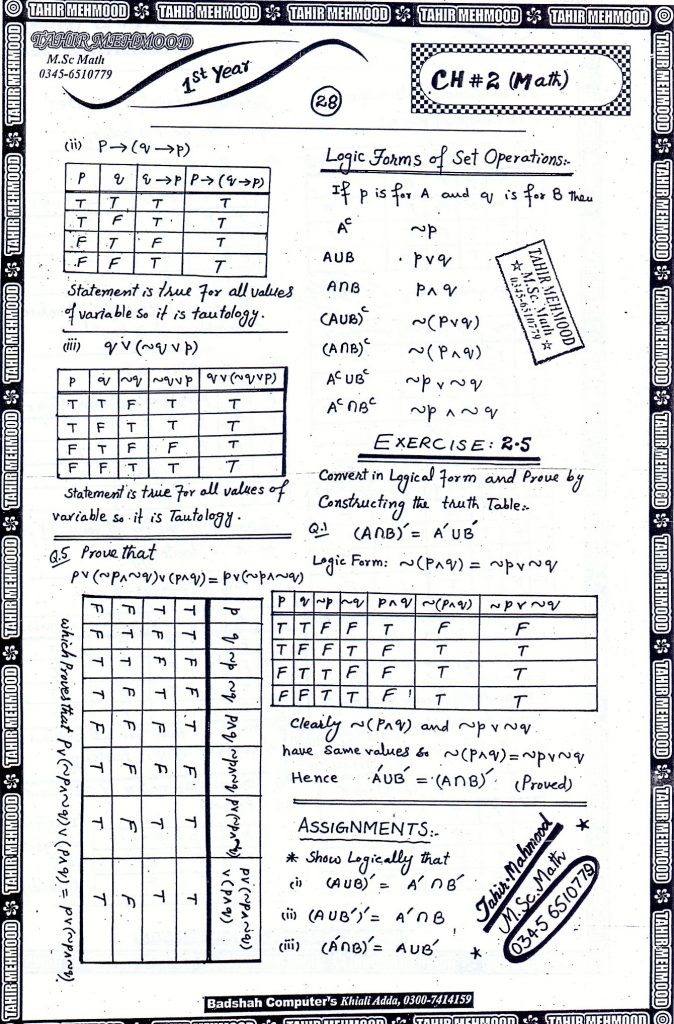 TAHIR MEHMOOD TAHIR MEHMOOD TAHIR MEHMOOD TAHIR MEHMOOD TAHIR MEHMOOD
TAHIR MEHMOOD
M.Sc Math
0345-6510779
1st Year
28
CH # 2 (Math)
(ii) P→(q→p)
P q q→p P→(q→p)
T T T T
T F T T
F T F T
F F T T
Statement is true for all values
of variable so it is tautology.
(iii) q∨(~q∨p)
p q ~q ~q∨p q∨(~q∨p)
T T F T T
T F T T T
F T F F T
F F T T T
Statement is true for all values of
variable so it is Tautology.
Q.5 Prove that
p∨(~p∧~q)∨(p∧q) = p∨(~p∧~q)
p q ~p ~q p∧q ~p∧~q p∨(~p∧~q) p∨(~p∧~q)∨(p∧q)
T T F F T F T T
T F F T F F T T
F T T F F F F F
F F T T F T T T
which proves that p∨(~p∧~q)∨(p∧q) = p∨(~p∧~q)
Logic Forms of Set Operations:-
If p is for A and q is for B then
Aᶜ ~p
A∪B p∨q
A∩B p∧q
(A∪B)ᶜ ~(p∨q)
(A∩B)ᶜ ~(p∧q)
Aᶜ∪Bᶜ ~p∨~q
Aᶜ∩Bᶜ ~p∧~q
TAHIR MEHMOOD
☆ M.Sc. Math ☆
0345-6510779
EXERCISE: 2.5
Convert in Logical form and Prove by
Constructing the truth Table:-
Q.1 (A∩B)′ = A′∪B′
Logic Form: ~(p∧q) = ~p∨~q
P q ~p ~q p∧q ~(p∧q) ~p∨~q
T T F F T F F
T F F T F T T
F T T F F T T
F F T T F T T
Clearly ~(p∧q) and ~p∨~q
have same values so ~(p∧q)=~p∨~q
Hence A′∪B′ = (A∩B)′ (Proved)
ASSIGNMENTS:-
* Show Logically that
(i) (A∪B)′ = A′∩B′
(ii) (A∪B′)′ = A′∩B
(iii) (A′∩B)′ = A∪B′
Tahir Mahmood
M.Sc. Math
0345 6510779
Badshah Computer's Khiali Adda, 0300-7414159